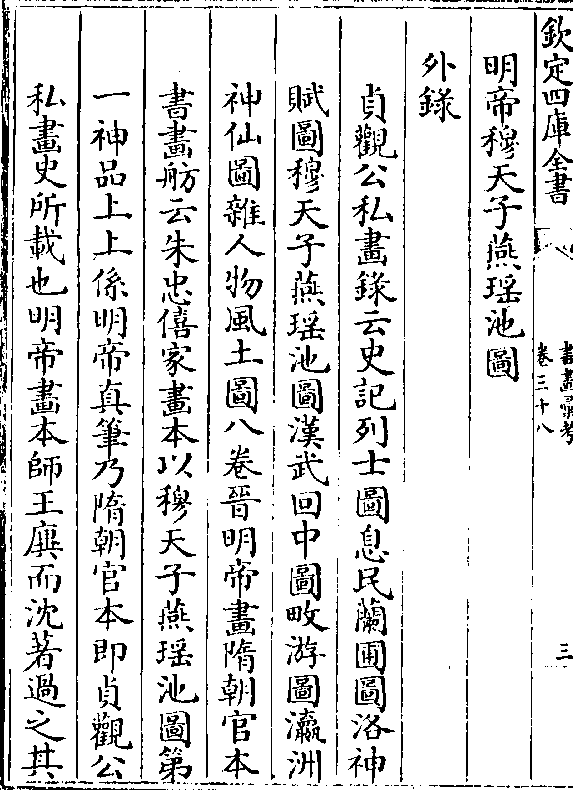 欽定四庫全書
書畫彚考
卷三十八
三
明帝穆天子燕瑶池圖
外錄
貞觀公私畫錄云史記列士圖息民蘭圃圖洛神
賦圖穆天子燕瑶池圖漢武回中圖畋游圖瀛洲
神仙圖雜人物風土圖八卷晉明帝畫隋朝官本
書畫舫云朱忠僖家畫本以穆天子燕瑶池圖第
一神品上上係明帝真筆乃隋朝官本即貞觀公
私畫史所載也明帝畫本師王廙而沈著過之其